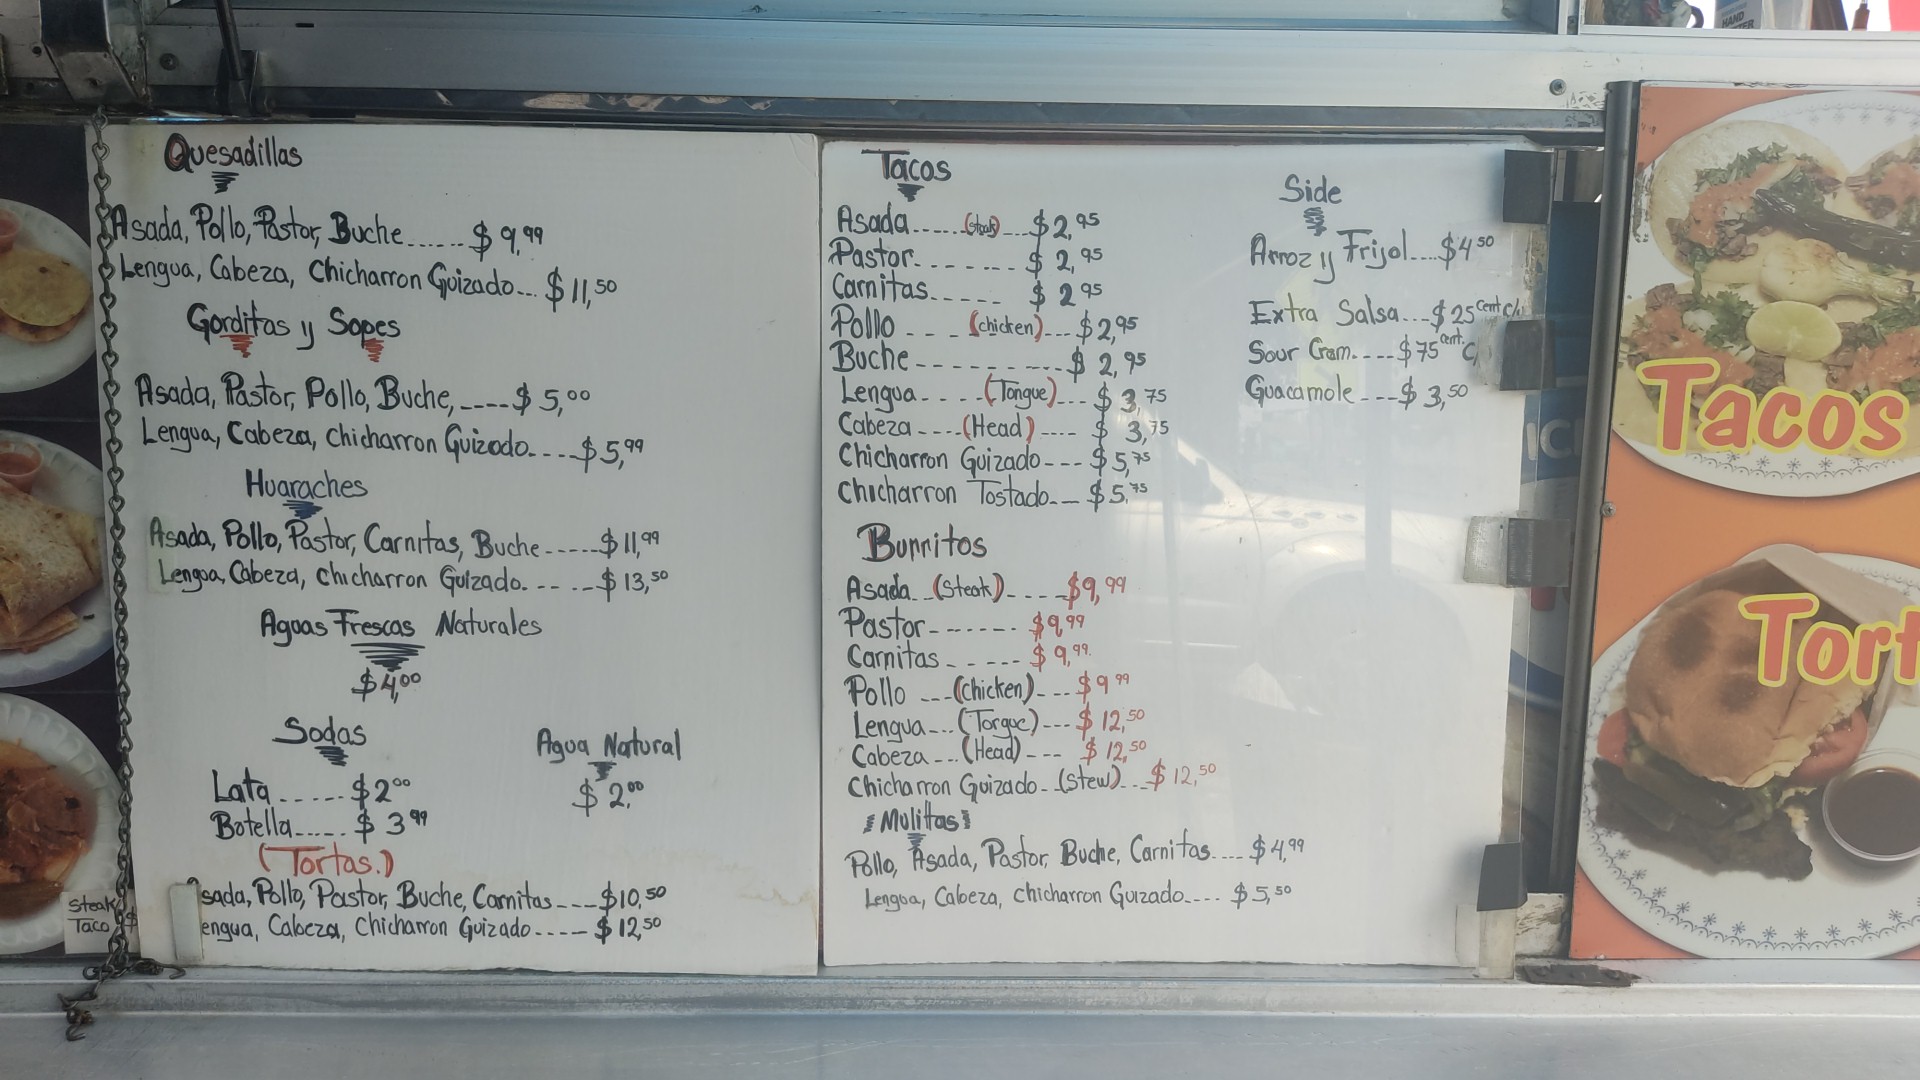 Quesadillas
Asada, Pollo, Pastor, Buche...... $9,99
Lengua, Cabeza, Chicharron Guizado... $11,50
Gorditas y Sopes
Asada, Pastor, Pollo, Buche,----$5,00
Lengua, Cabeza, Chicharron Guizado....$5,99
Huaraches
Asada, Pollo, Pastor, Carnitas, Buche------$11,99
Lengoa, Cabeza, Chicharron Guizado.-----$13,50
Aguas Frescas Naturales
$4,00
Sodas
Lata......$2 00
Botella......$3 99
Agua Natural
$2,00
(Tortas.)
sada, Pollo, Pastor, Buche, Carnitas----$10,50
engua, Cabeza, Chicharron Guizado----$12,50
Steak
Taco
$
Tacos
Asada......(steak)...$2,95
Pastor.-------$2,95
Carnitas.-----$2 95
Pollo---(chicken)---$2,95
Buche----------$2,95
Lengua----(Tongue)---$3,75
Cabeza----(Head)----$3,75
Chicharron Guizado---$5,75
Chicharron Tostado--$5,75
Burritos
Asada--(Steak)----$9,99
Pastor-------$9,99
Carnitas-----$9,99.
Pollo---(chicken)---$9 99
Lengua---(Torgue)---$12,50
Cabeza---(Head)---$12,50
Chicharron Guizado--(Stew)...$12,50
Mulitas
Pollo, Asada, Pastor, Buche, Carnitas----$4,99
Lengoa, Cabeza, Chicharron Guizado....$5,50
Side
Arroz y Frijol....$4 50
Extra Salsa...$25 cent c/
Sour Cram.---$75 cent. c
Guacamole---$3,50
HAND
IC
Tacos
Tort